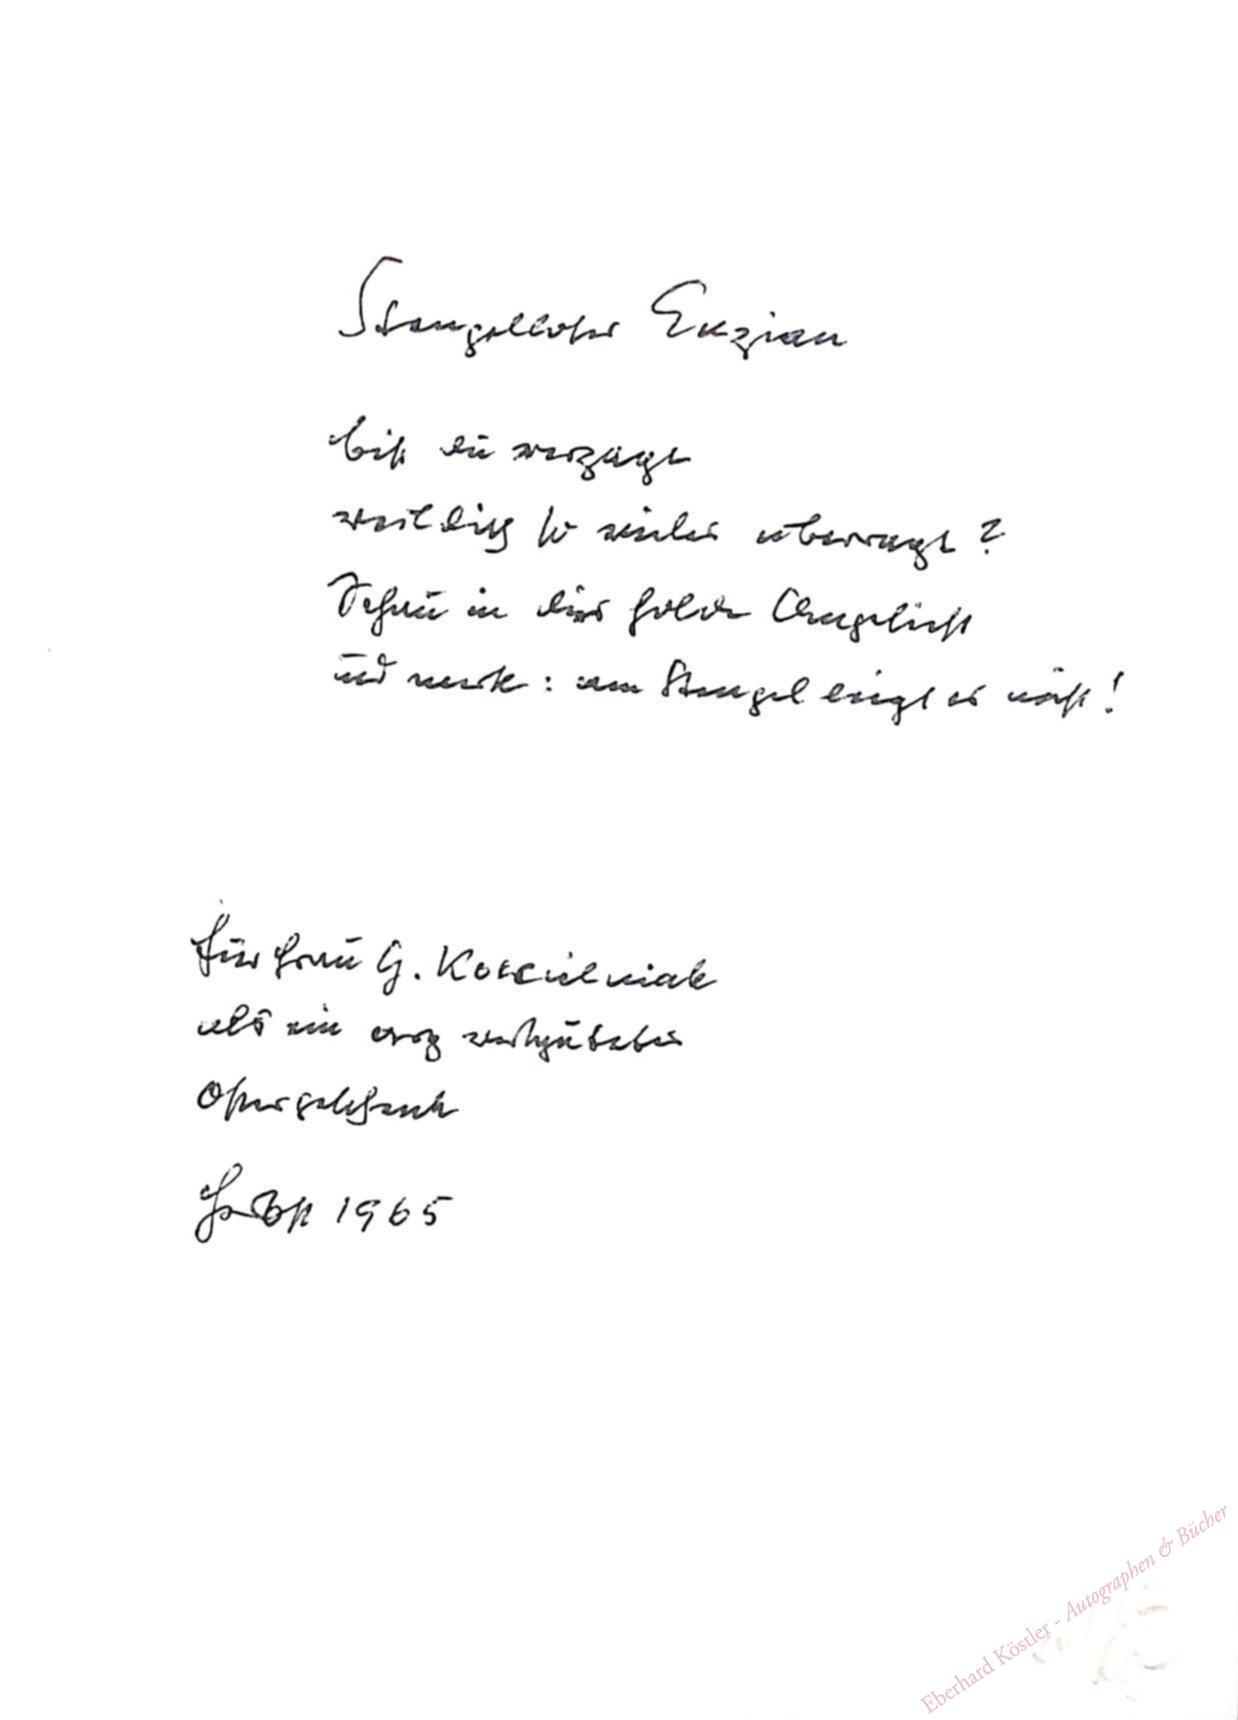 Stengelloser Enzian
bist du verzagt
weil dich so vieles überragt?
Schau in dies holde Angesicht
und merk: am Stengel liegt es nicht!
für Frau G. Koscielniak
als ein arg verspätetes
Ostergeschenk
1965
Eberhard Köstler - Autographen & Bücher